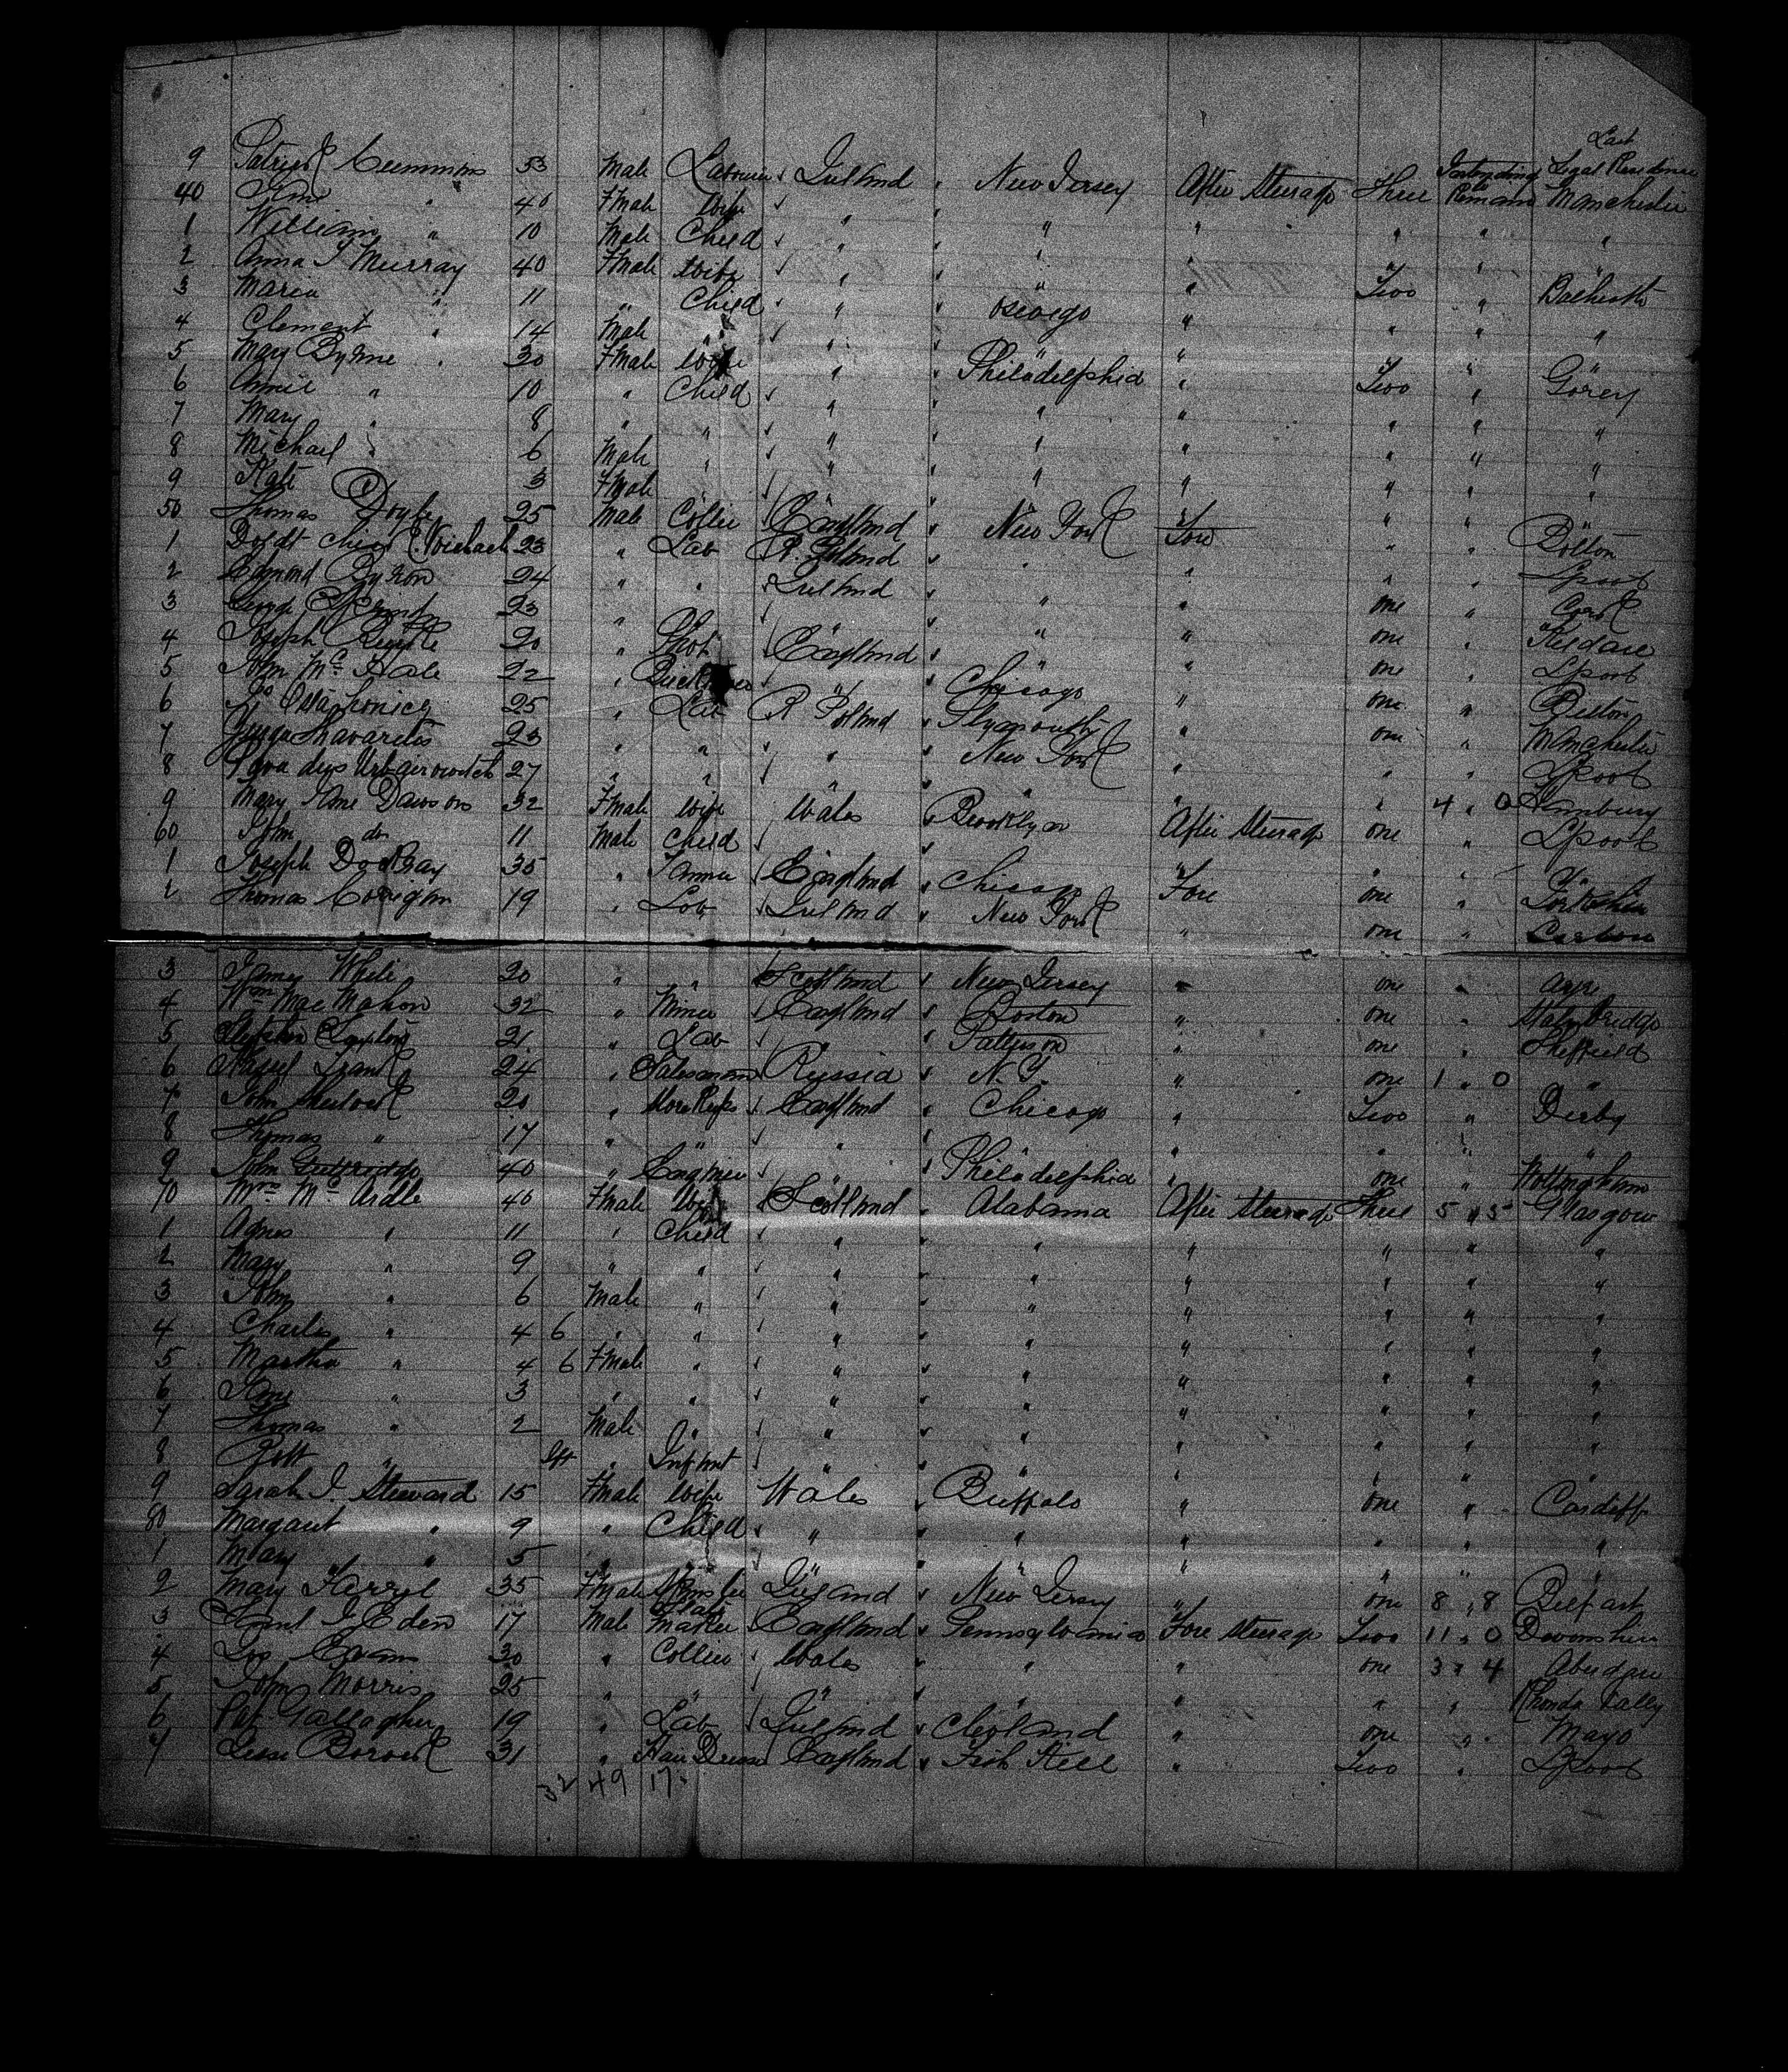 Last
Intending Legal Residence
9 Patrick Cummins 53 Male Labourer Ireland New Jersey After Steerage Three Remain Manchester
40 Jane " 40 Fmale Wife " " " " " "
1 William " 10 Male Child " " " " " "
2 Anna J Murray 40 Fmale Wife " " Two "
3 Maria " 11 " Child " Oswego " " " "
4 Clement " 14 Male " " " " " " "
5 Mary Byrne 30 Fmale Wife " Philadelphia " Two " Gorey
6 Annie " 10 " Child " " " " " "
7 Mary " 8 " " " " " " " "
8 Michael " 6 Male " " " " " " "
9 Kate 3 Fmale " " " " " "
50 Thomas Doyle 25 Male Collier England New York Fore " " Bolton
1 23 " Lab " " " " Lpool
2 Edmond Byron 24 " " Ireland " " one " Cork
3 23 " " " " one " Kildare
4 Joseph 20 " England " " one " Lpool
5 John Mc Hale 22 " " Chicago " one " Bolton
6 25 " Lab R Poland Plymouth " one " Manchester
7 23 " " " New York " " " Lpool
8 27 " " " " " " 4 " 0 Hamburg
9 Mary Jane Dawson 32 Fmale Wife Wales Brooklyn After Steerage one " Lpool
60 John do 11 Male Child " " " " "
1 Joseph Dockray 35 " Tanner England Chicago Fore one " Yorkshire
2 Thomas Corrigan 19 " Lab Ireland New York " one "
3 James White 20 " " Scotland New Jersey " one " Ayr
4 Wm Mac Mahon 32 " Miner England Boston " one " Stalybridge
5 21 " Lab " Patterson " one " Sheffield
6 24 " Salesman Russia N.Y. " one 1 " 0 "
7 John Sherlock 20 " Store Kepr England Chicago " Two " Derby
8 Thomas " 17 " " " " " " " "
9 John Guttridge 40 " Engineer " Philadelphia " one " Nottingham
70 Mrs Mc Ardle 40 Fmale Wife Scotland Alabama After Steerage Three 5 " 5 Glasgow
1 Agnes " 11 " Child " " " " " "
2 Mary " 9 " " " " " " " "
3 John " 6 Male " " " " " " "
4 Charles " 4 6 " " " " " " " "
5 Martha " 4 6 Fmale " " " " " " "
6 Jane " 3 " " " " " " " "
7 Thomas " 2 Male " " " " " " "
8 Robt " Inft " Infant " " " " " "
9 Sarah J. Steward 15 Fmale Wife Wales Buffalo " one " Cardiff
80 Margaret " 9 " Child " " " " " "
1 Mary " 5 " " " " " " " "
2 Mary Farrel 35 Fmale Ireland New Jersey " one 8 " 8 Belfast
3 J Eden 17 Male Maker England Pennsylvania Fore Steerage Two 11 " 0 Devonshire
4 Evans 30 " Collier Wales " " one 3 " 4 Aberdare
5 John Morris 25 " " " " " " " Rhonda Vally
6 Pat Gallagher 19 " Lab Ireland Cleveland " one " Mayo
7 Jesse 31 " Hair Dresser England Fish Kell " Two " Lpool
32 49 17